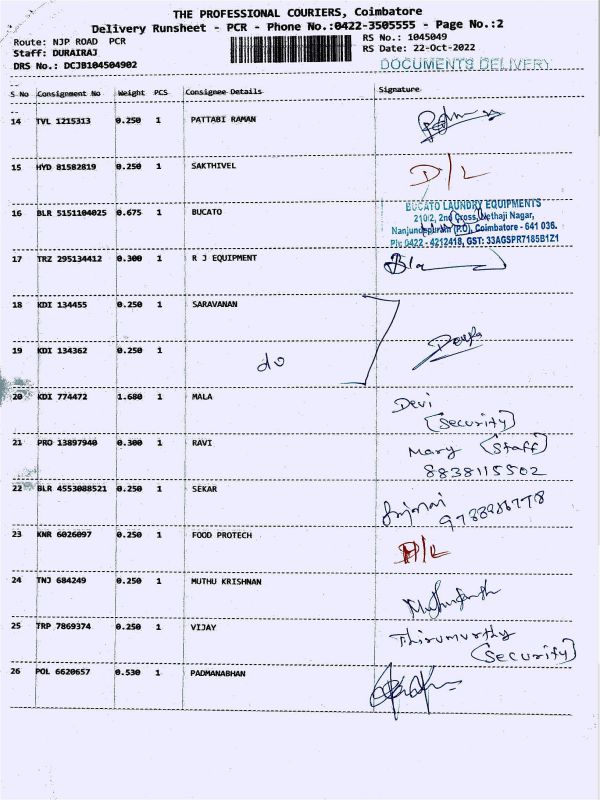 THE PROFESSIONAL COURIERS, Coimbatore
Delivery Runsheet - PCR - Phone No.:0422-3505555 - Page No.:2
Route: NJP ROAD PCR
RS No.: 1045049
Staff: DURAIRAJ
RS Date: 22-Oct-2022
DRS No.: DCJB104504902
DOCUMENTS DELIVERY
S No Consignment No Weight PCS Consignee Details Signature
14 TVL 1215313 0.250 1 PATTABI RAMAN
15 HYD 81582819 0.250 1 SAKTHIVEL D/L
16 BLR 5151104025 0.675 1 BUCATO
BUCATO LAUNDRY EQUIPMENTS
210/2, 2nd Cross, Nethaji Nagar,
Nanjundapuram (P.O), Coimbatore - 641 036.
Ph: 0422 - 4212418, GST: 33AGSPR7185B1Z1
17 TRZ 295134412 0.300 1 R J EQUIPMENT
18 KDI 134455 0.250 1 SARAVANAN
19 KDI 134362 0.250 1 do
20 KDI 774472 1.680 1 MALA Devi
(Security)
21 PRO 13897940 0.300 1 RAVI Mary (Staff)
8838115502
22 BLR 4553088521 0.250 1 SEKAR
23 KNR 6026097 0.250 1 FOOD PROTECH D/L
24 TNJ 684249 0.250 1 MUTHU KRISHNAN
25 TRP 7869374 0.250 1 VIJAY Thirumurthy
(Security)
26 POL 6620657 0.530 1 PADMANABHAN